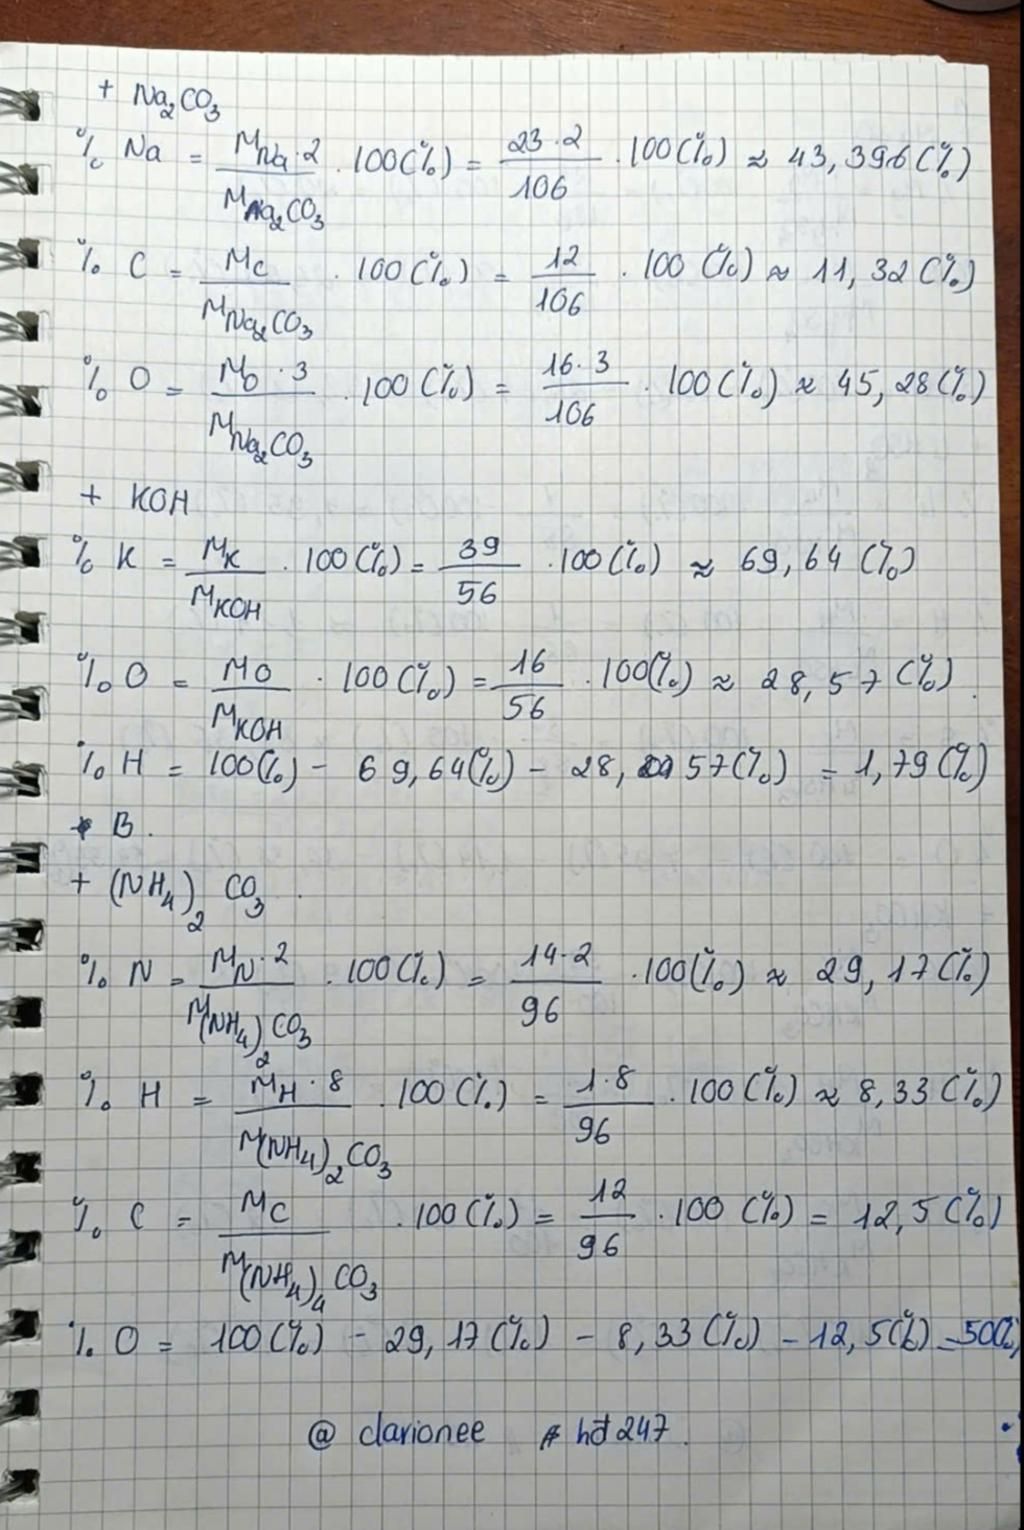 + Na₂CO₃
% Na = M_Na · 2 / M_Na₂CO₃ · 100(%) = 23 · 2 / 106 · 100(%) ≈ 43,396(%)
% C = M_C / M_Na₂CO₃ · 100(%) = 12 / 106 · 100(%) ≈ 11,32(%)
% O = M_O · 3 / M_Na₂CO₃ · 100(%) = 16 · 3 / 106 · 100(%) ≈ 45,28(%)
+ KOH
% K = M_K / M_KOH · 100(%) = 39 / 56 · 100(%) ≈ 69,64(%)
% O = M_O / M_KOH · 100(%) = 16 / 56 · 100(%) ≈ 28,57(%)
% H = 100(%) - 69,64(%) - 28,57(%) = 1,79(%)
B.
+ (NH₄)₂CO₃.
% N = M_N · 2 / M_(NH₄)₂CO₃ · 100(%) = 14 · 2 / 96 · 100(%) ≈ 29,17(%)
% H = M_H · 8 / M_(NH₄)₂CO₃ · 100(%) = 1 · 8 / 96 · 100(%) ≈ 8,33(%)
% C = M_C / M_(NH₄)₄CO₃ · 100(%) = 12 / 96 · 100(%) = 12,5(%)
% O = 100(%) - 29,17(%) - 8,33(%) - 12,5(%) = 50(%)
@ clarionee hđ247.